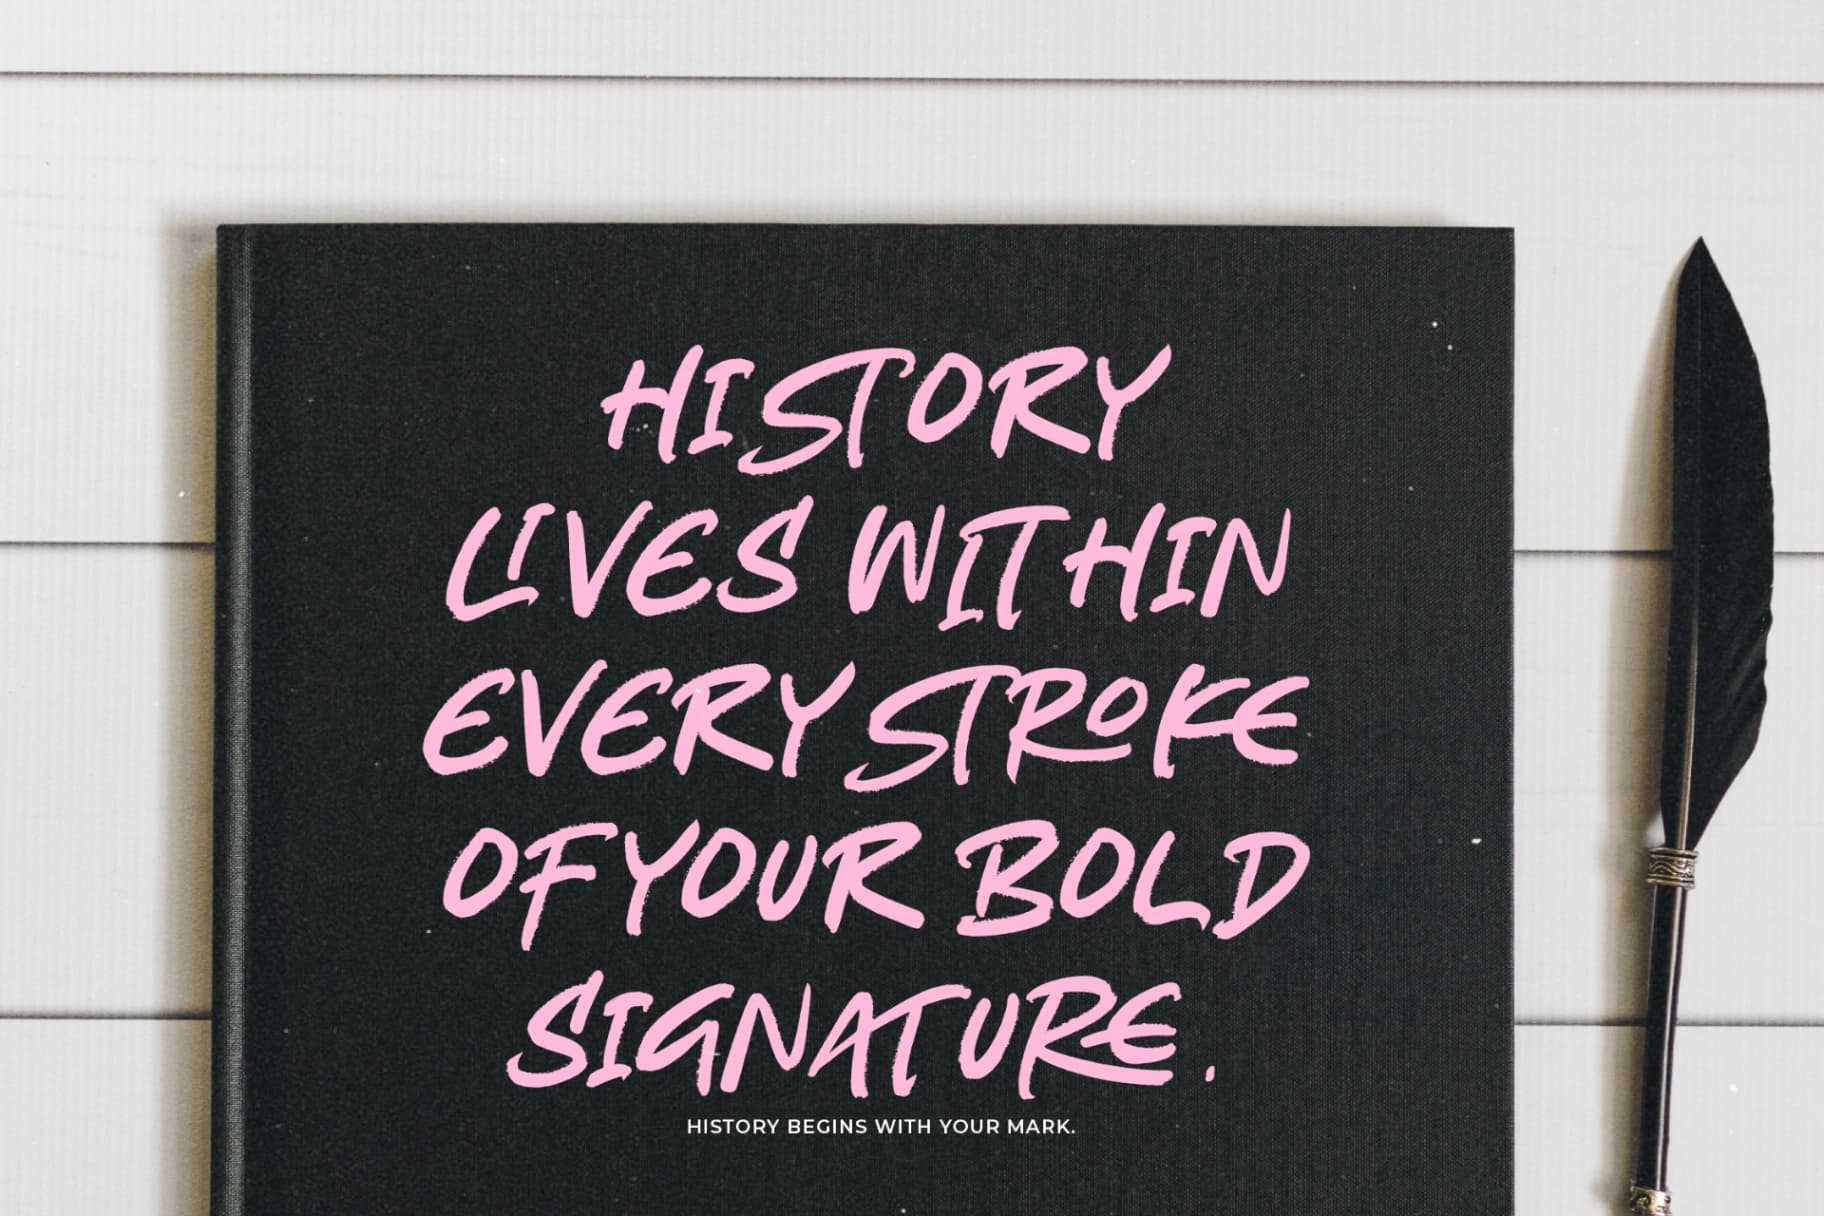 HISTORY
LIVES WITHIN
EVERY STROKE
OF YOUR BOLD
SIGNATURE.
HISTORY BEGINS WITH YOUR MARK.